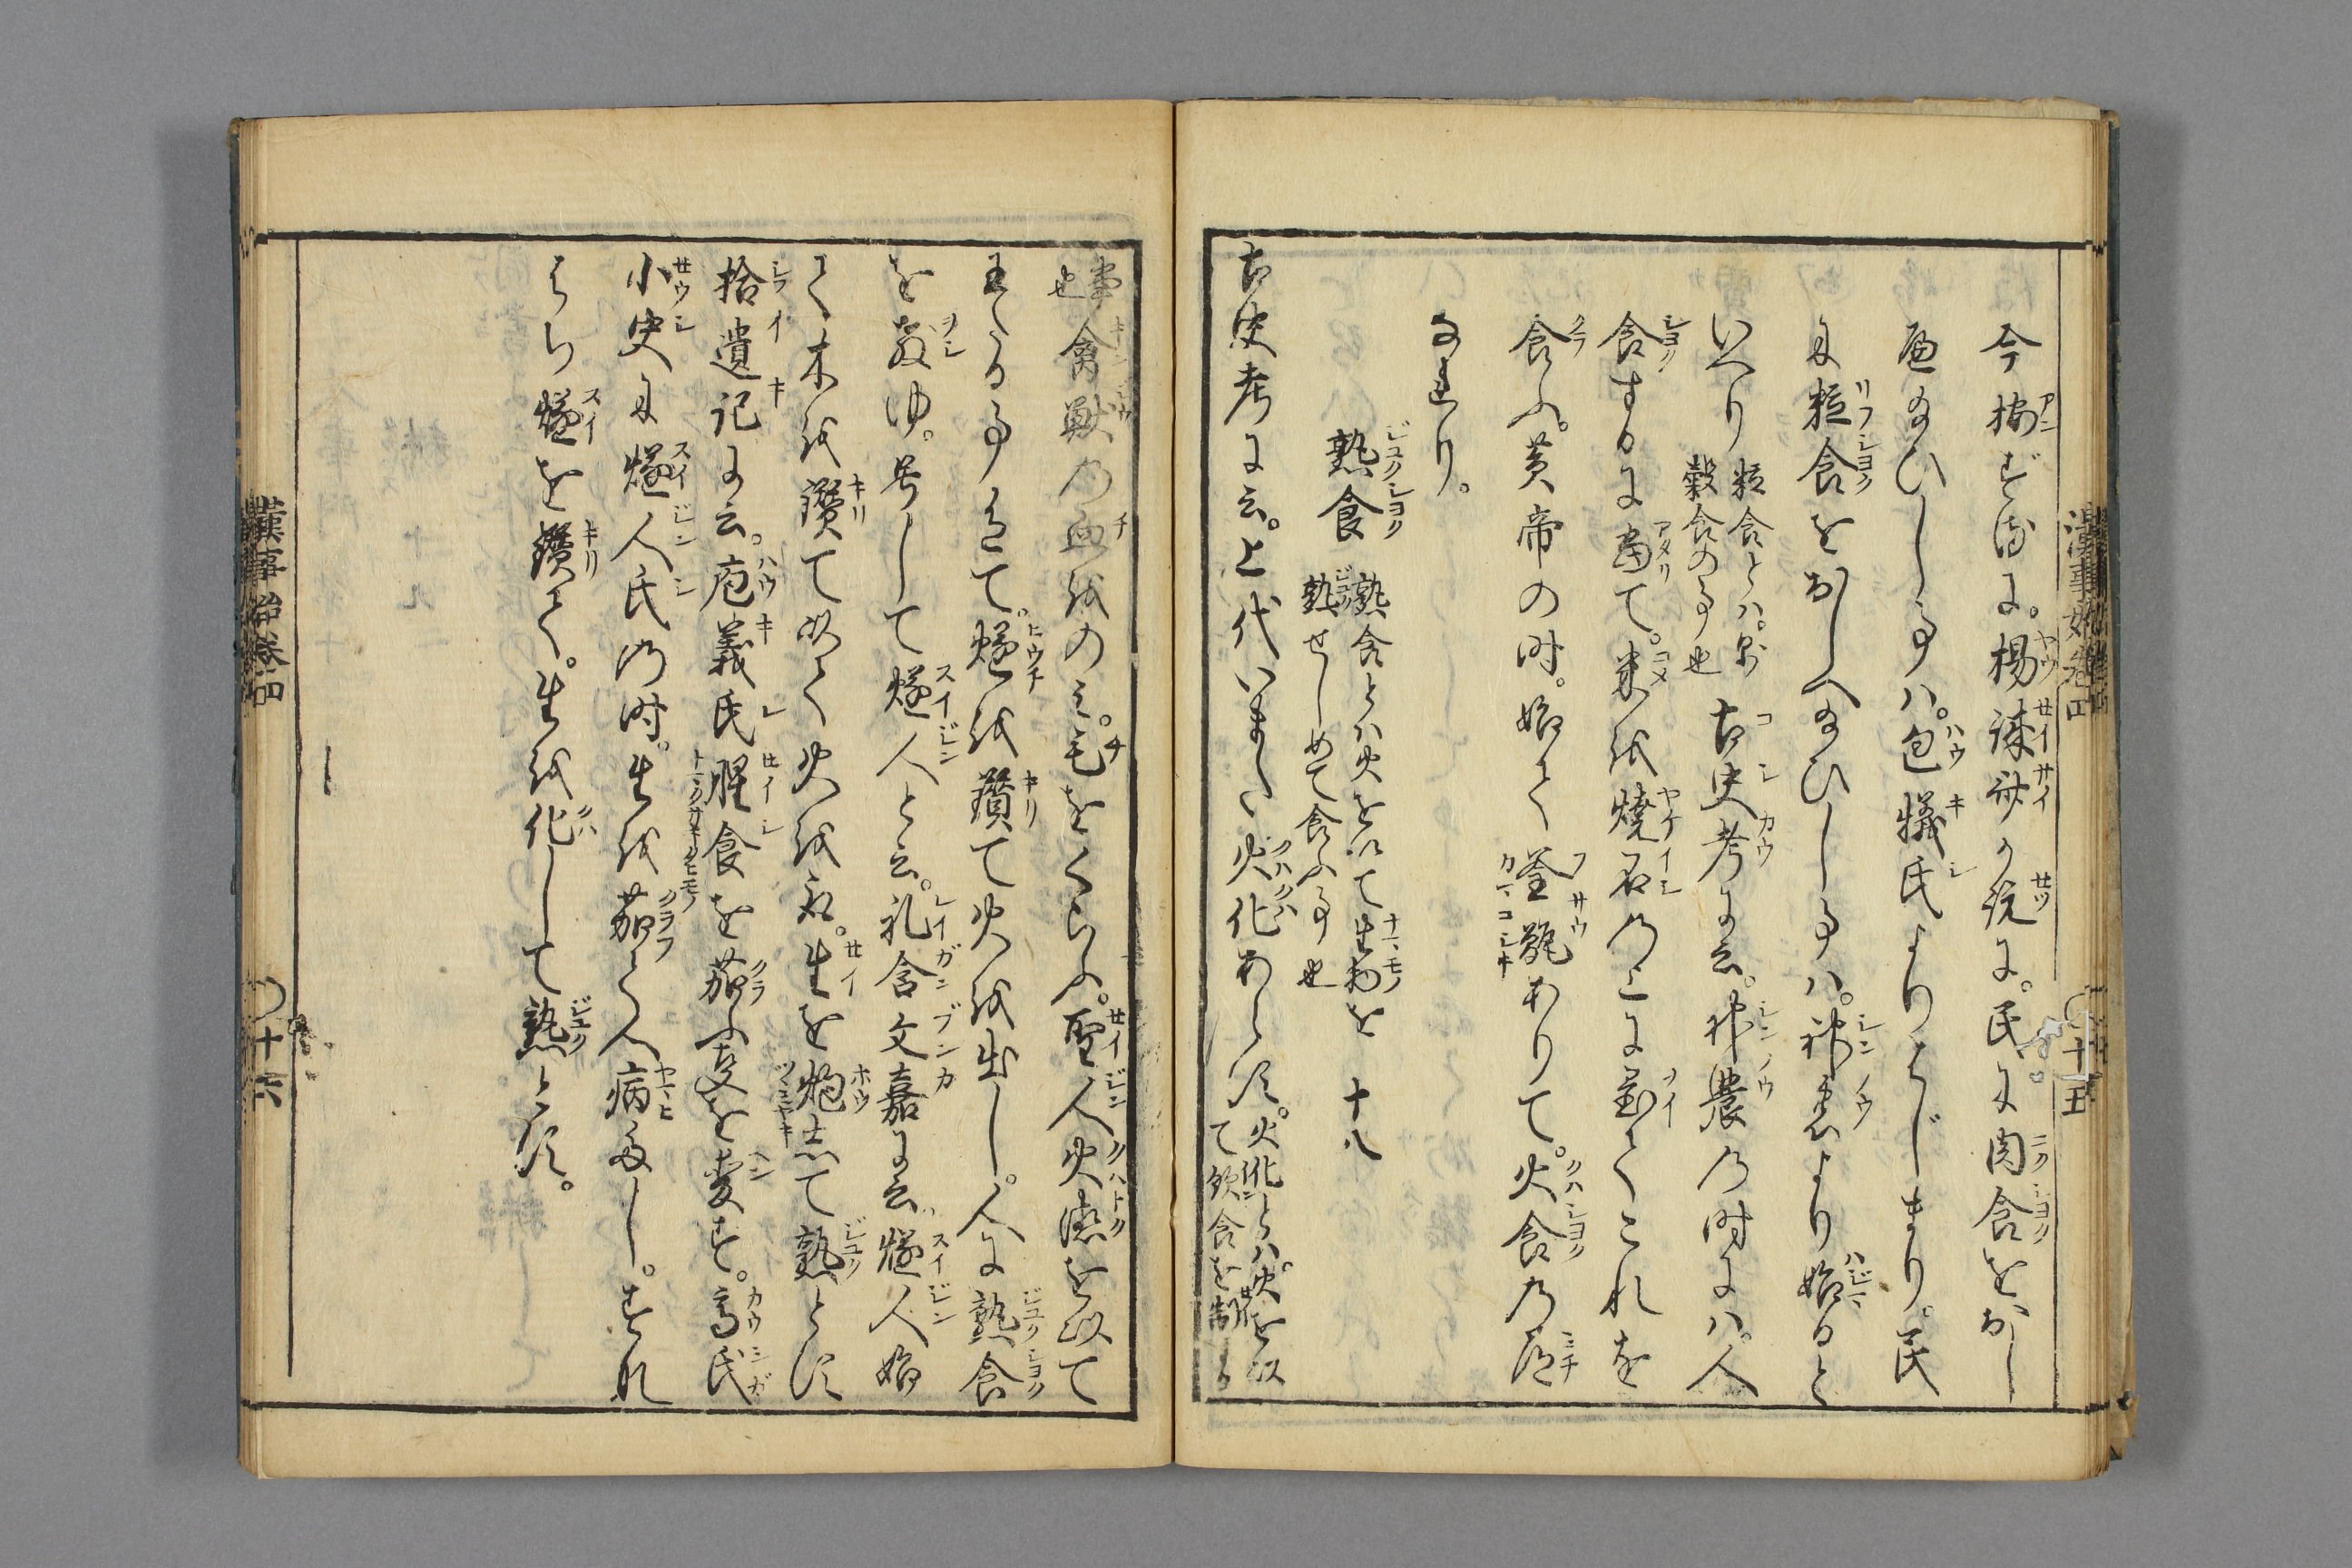 今按ずるに。楊誠斎の説に。民に肉食をおし
へ給ひし事ハ。包犠氏よりはじまり。民
に粒食をおしへ給ひし事ハ。神農より始ると
いへり 粒食とハ。米
穀食の事也 古史考に云。神農の時にハ。人
食するに当て。米を焼石の上に置てこれを
食ふ。黄帝の時。始て釜甑ありて。火食の道
なれり。
熟食 熟食とハ火を以て生物を
熟せしめて食ふ事也 十八
古史考に云。上代いまだ火化あらず。火化とハ。火を以
て飲食を制する
事
也 禽獣の血をのミ。毛をくらふ。聖人火徳を以て
王たる事有て。燧を鑚て火を出し。人に熟食
を教ゆ。号して燧人と云。礼含文嘉に云燧人始
て木を鑚て以て火を取。生を炮して熟とす
拾遺記に云。庖羲氏腥食を茹ふ変を変ず。高氏
小史に燧人氏の時。生を茹て人病多し。すなれ
はち燧を鑚て。生を化して熟とす。
漢事始巻四 〇十五
漢事始巻四 〇十六